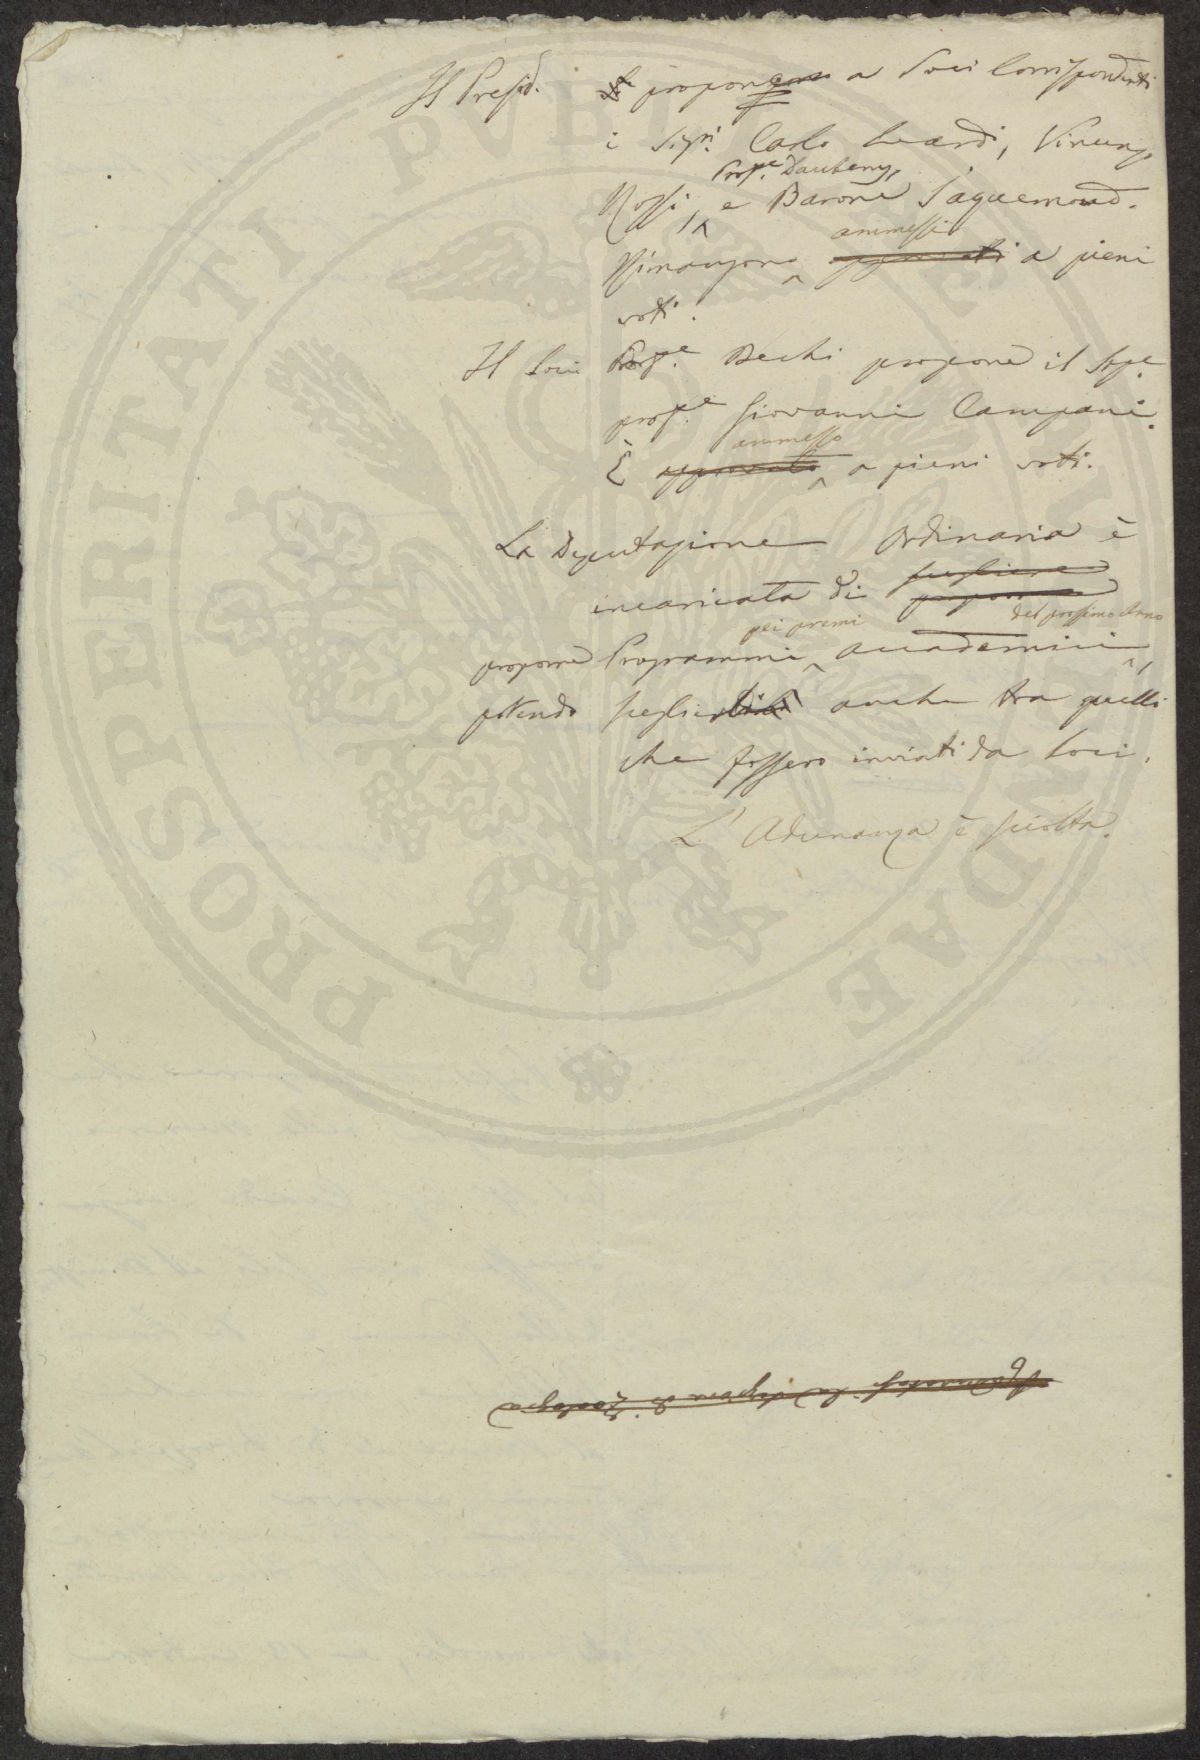 Il Presid. propone a Soci Corrispondenti
i Sigri. Carlo Leardi, Vincenzo
Profe. Daubeny,
Rossi, e Barone Jaquemoud.
ammessi
Rimangono approvati a pieni
voti.
Il Socio Profe. Bechi propone il Sigre.
profe. Giovanni Campani.
ammesso
È approvato a pieni voti.
La Deputazione Ordinaria è
scegliere
incaricata di proporre
pei premi del prossimo Anno
proporre Programmi accademici,
potendo anche tra quelli
che fossero inviati da Soci.
L'Adunanza è sciolta.
PROSPERITATI PUBLICAE AUGENDAE